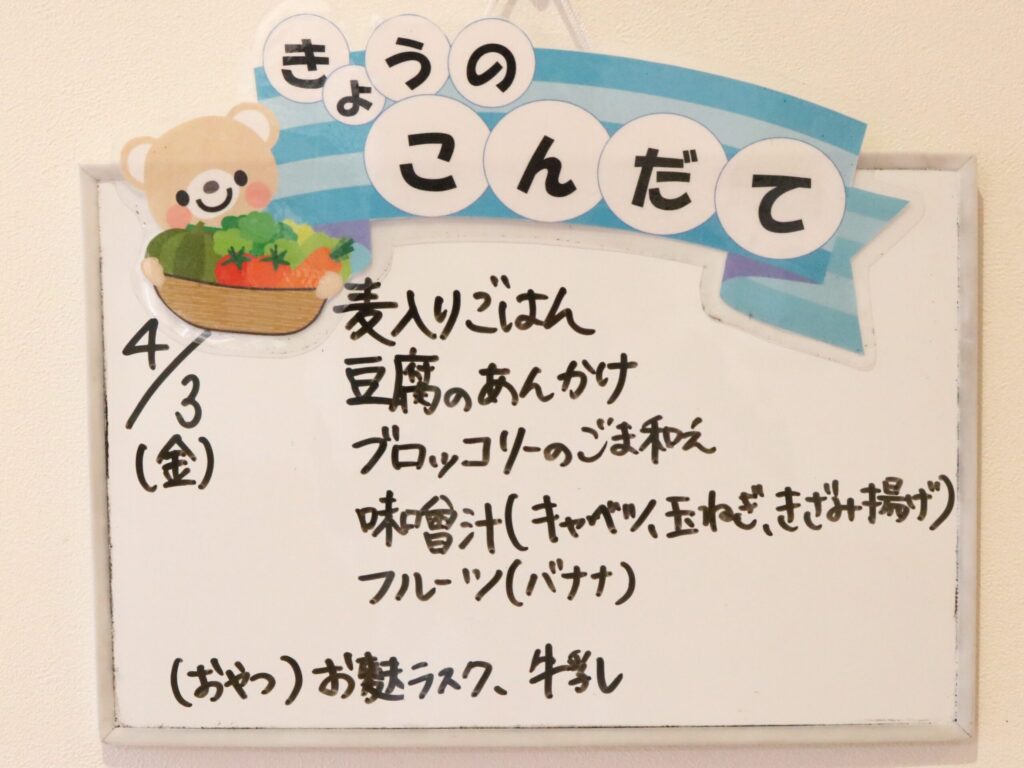 きょうの
こんだて
4/3
(金)
麦入りごはん
豆腐のあんかけ
ブロッコリーのごま和え
味噌汁(キャベツ、玉ねぎ、きざみ揚げ)
フルーツ(バナナ)
(おやつ)お麩ラスク、牛乳